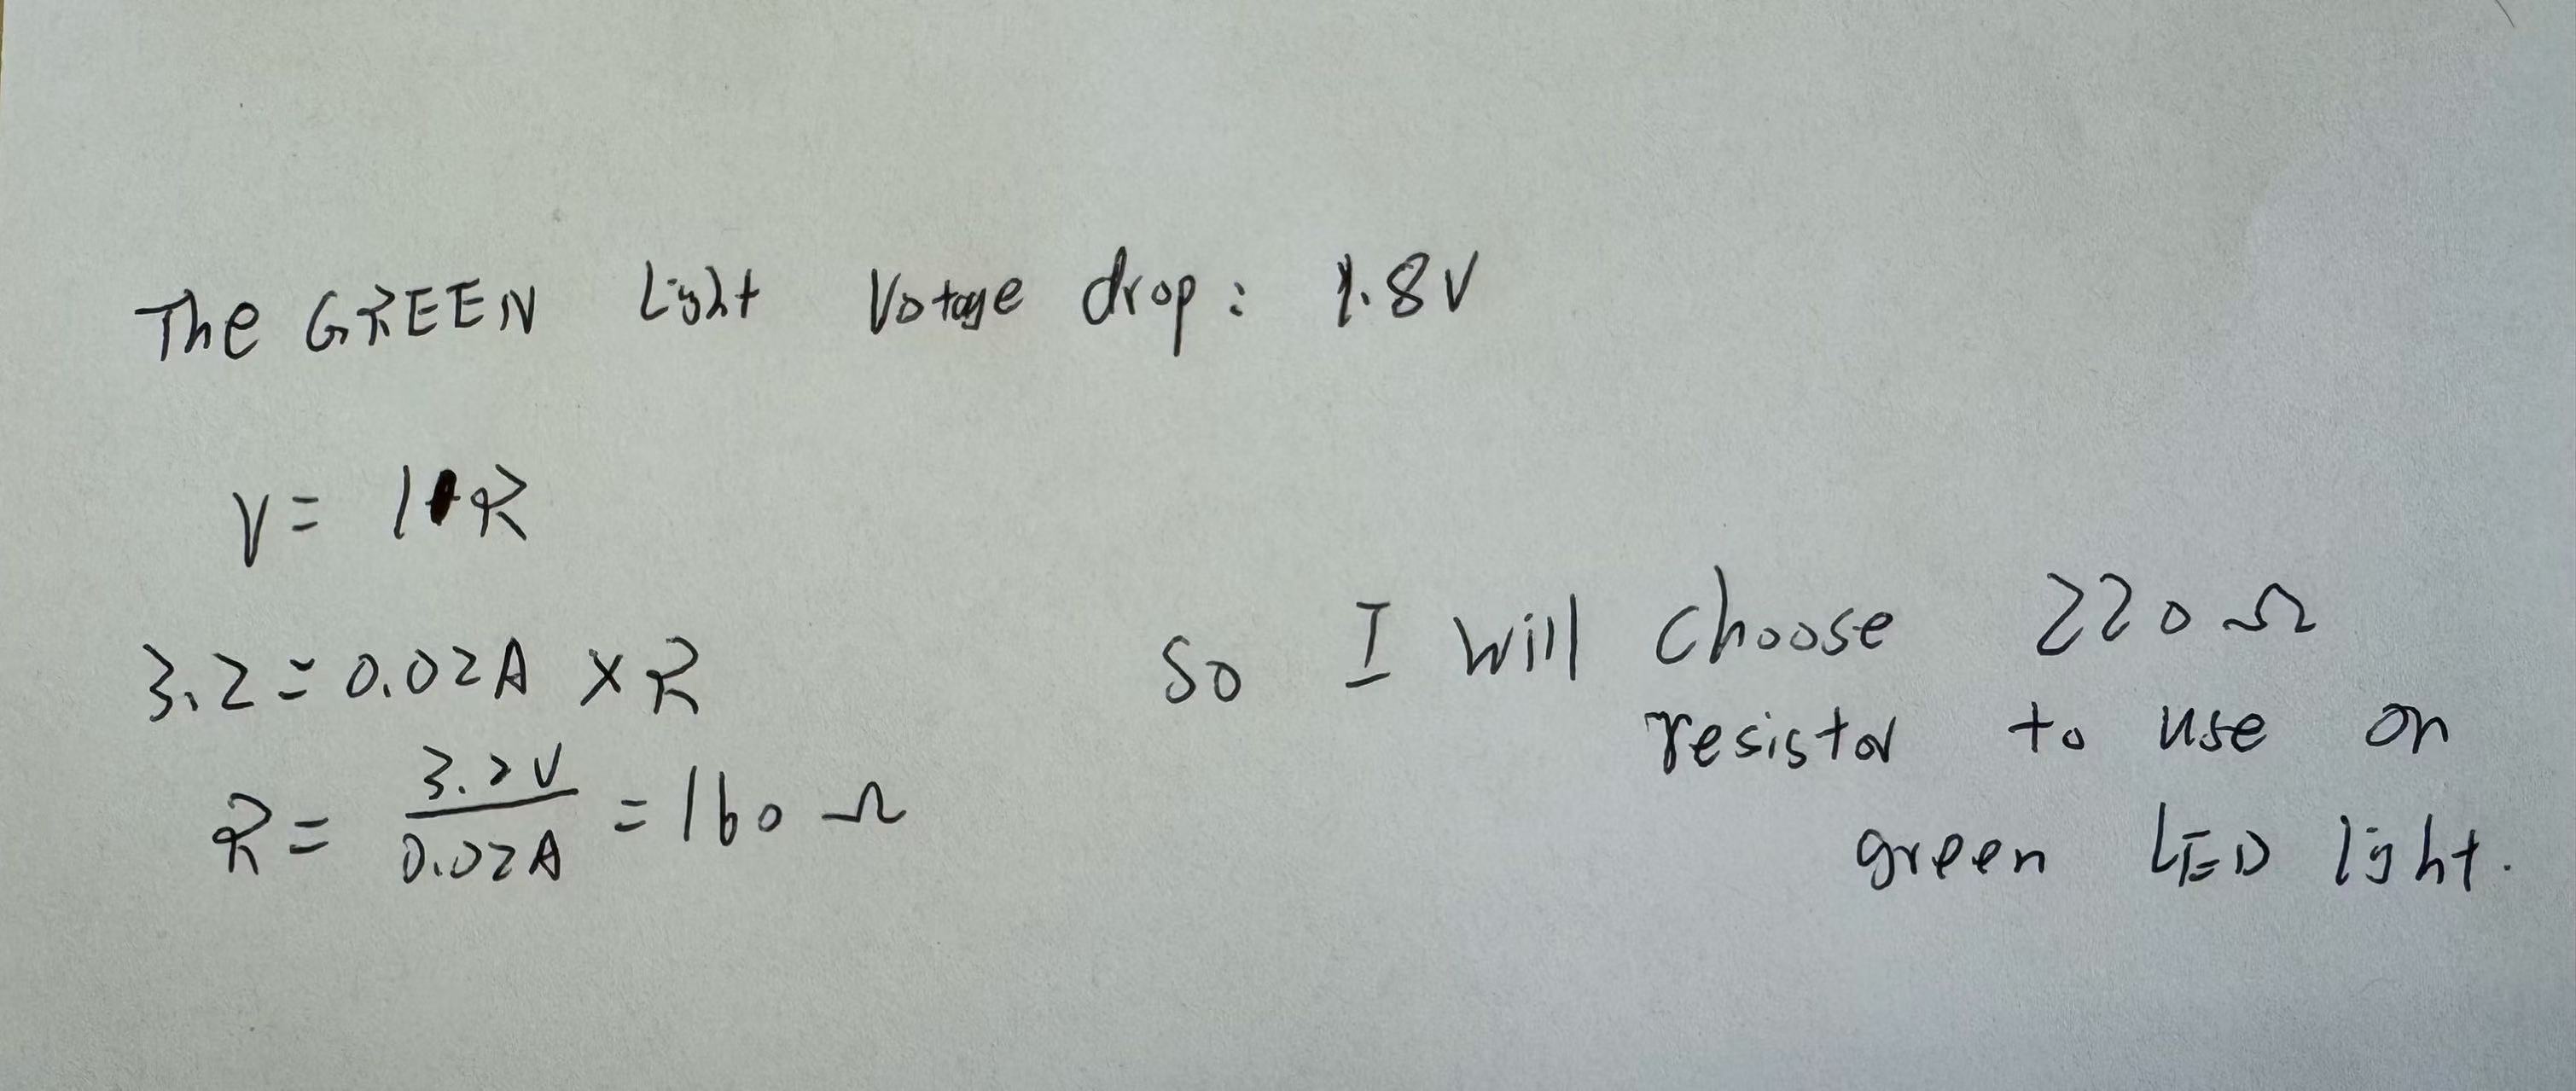 The GREEN Light Votage drop: 1.8V
V = I·R
3.2 = 0.02A × R
R = 3.2V / 0.02A = 160 Ω
So I will choose 220 Ω
resistor to use on
green LED light.